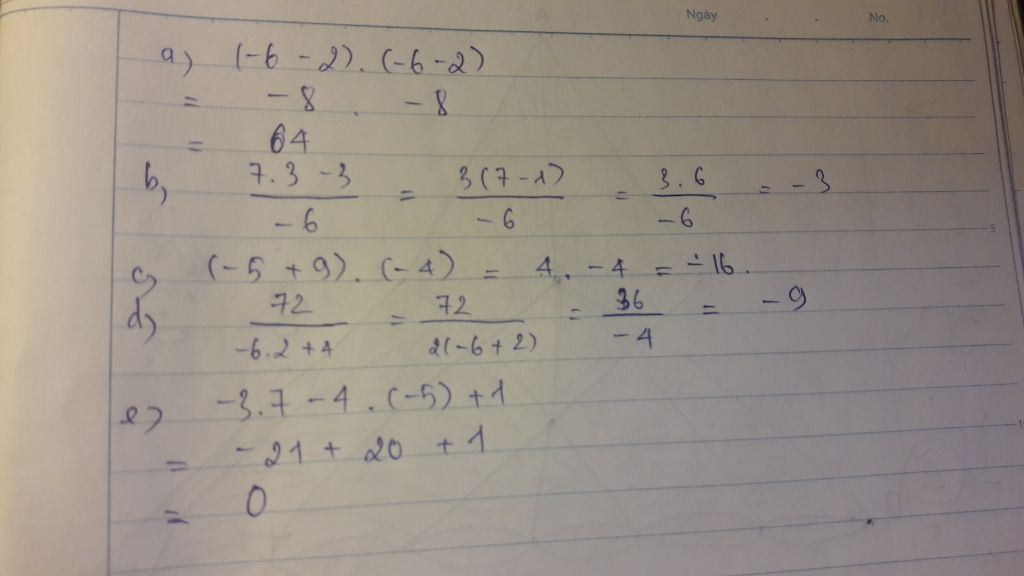 Ngày . . No.
a) (-6 - 2). (-6 - 2)
= -8 . -8
= 64
b, 7.3 - 3 / -6 = 3(7 - 1) / -6 = 3.6 / -6 = -3
c, (-5 + 9). (-4) = 4. -4 = -16.
d, 72 / -6.2 + 4 = 72 / 2(-6 + 2) = 36 / -4 = -9
e) -3.7 - 4 . (-5) + 1
= -21 + 20 + 1
= 0